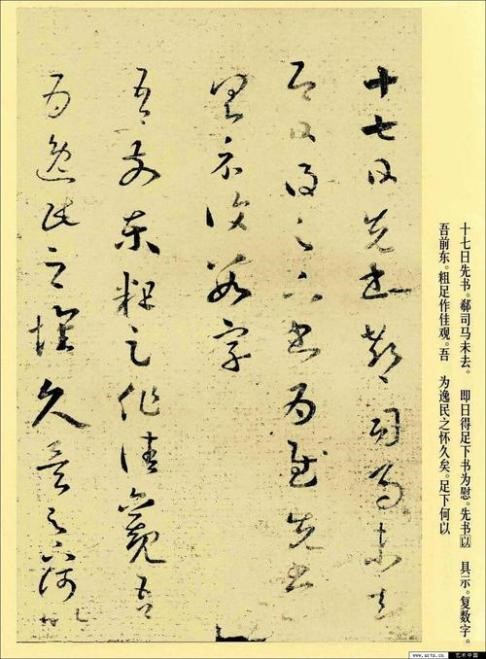 十七日先書郗司馬未去
即日得足下書為慰先書
具示復數字
吾前東粗足作佳觀吾
為逸民之懷久矣足下何以
十七日先书。郗司马未去。 即日得足下书为慰。先书以 具示。复数字。
吾前东。粗足作佳观。吾 为逸民之怀久矣。足下何以
www.artx.cn 艺术中国